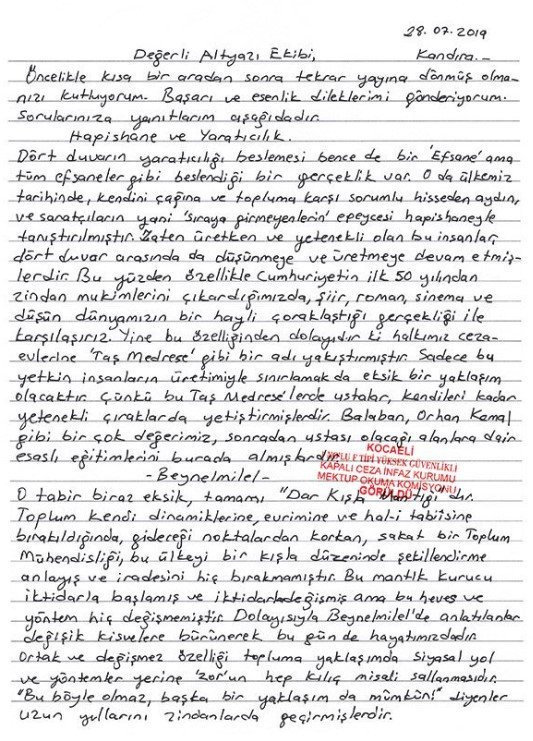 28.07.2019
Değerli Altyazı Ekibi, Kandıra.-
Öncelikle kısa bir aradan sonra tekrar yayına dönmüş olma-
nızı kutluyorum. Başarı ve esenlik dileklerimi gönderiyorum.
Sorularınıza yanıtlarım aşağıdadır.
Hapishane ve Yaratıcılık.
Dört duvarın yaratıcılığı beslemesi bence de bir 'Efsane' ama
tüm efsaneler gibi beslendiği bir gerçeklik var. O da ülkemiz
tarihinde, kendini çağına ve topluma karşı sorumlu hisseden aydın,
ve sanatçıların yani 'sıraya girmeyenlerin' epeycesi hapishaneyle
tanıştırılmıştır. Zaten üretken ve yetenekli olan bu insanlar,
dört duvar arasında da düşünmeye ve üretmeye devam etmiş-
lerdir. Bu yüzden özellikle Cumhuriyetin ilk 50 yılından
zindan mukimlerini çıkardığımızda, şiir, roman, sinema ve
düşün dünyamızın bir hayli çoraklaştığı gerçekliği ile
karşılaşırız. Yine bu özelliğinden dolayıdır ki halkımız ceza-
evlerine 'Taş Medrese' gibi bir adı yakıştırmıştır. Sadece bu
yetkin insanların üretimiyle sınırlamak da eksik bir yaklaşım
olacaktır. Çünkü bu Taş Medrese'lerde ustalar, kendileri kadar
yetenekli çıraklarda yetiştirmişlerdir. Balaban, Orhan Kemal
gibi bir çok değerimiz, sonradan ustası olacağı alanlara dair
esaslı eğitimlerini burada almışlardır.
KOCAELİ
F TİPİ YÜKSEK GÜVENLİKLİ
KAPALI CEZA İNFAZ KURUMU
MEKTUP OKUMA KOMİSYONU
GÖRÜLDÜ
-Beynelmilel-
O tabir biraz eksik, tamamı "Dar Kışla Mantığı"dır.
Toplum kendi dinamiklerine, evrimine ve hal-i tabiisine
bırakıldığında, gideceği noktalardan korkan, sakat bir Toplum
Mühendisliği, bu ülkeyi bir kışla düzeninde şekillendirme
anlayış ve iradesini hiç bırakmamıştır. Bu mantık kurucu
iktidarla başlamış ve iktidarlar değişmiş ama bu heves ve
yöntem hiç değişmemiştir. Dolayısıyla Beynelmilel'de anlatılanlar
değişik kisvelere bürünerek bu gün de hayatımızdadır.
Ortak ve değişmez özelliği topluma yaklaşımda siyasal yol
ve yöntemler yerine 'zor'un hep kılıç misali sallanmasıdır.
"Bu böyle olmaz, başka bir yaklaşım da mümkün!" diyenler
uzun yıllarını zindanlarda geçirmişlerdir.